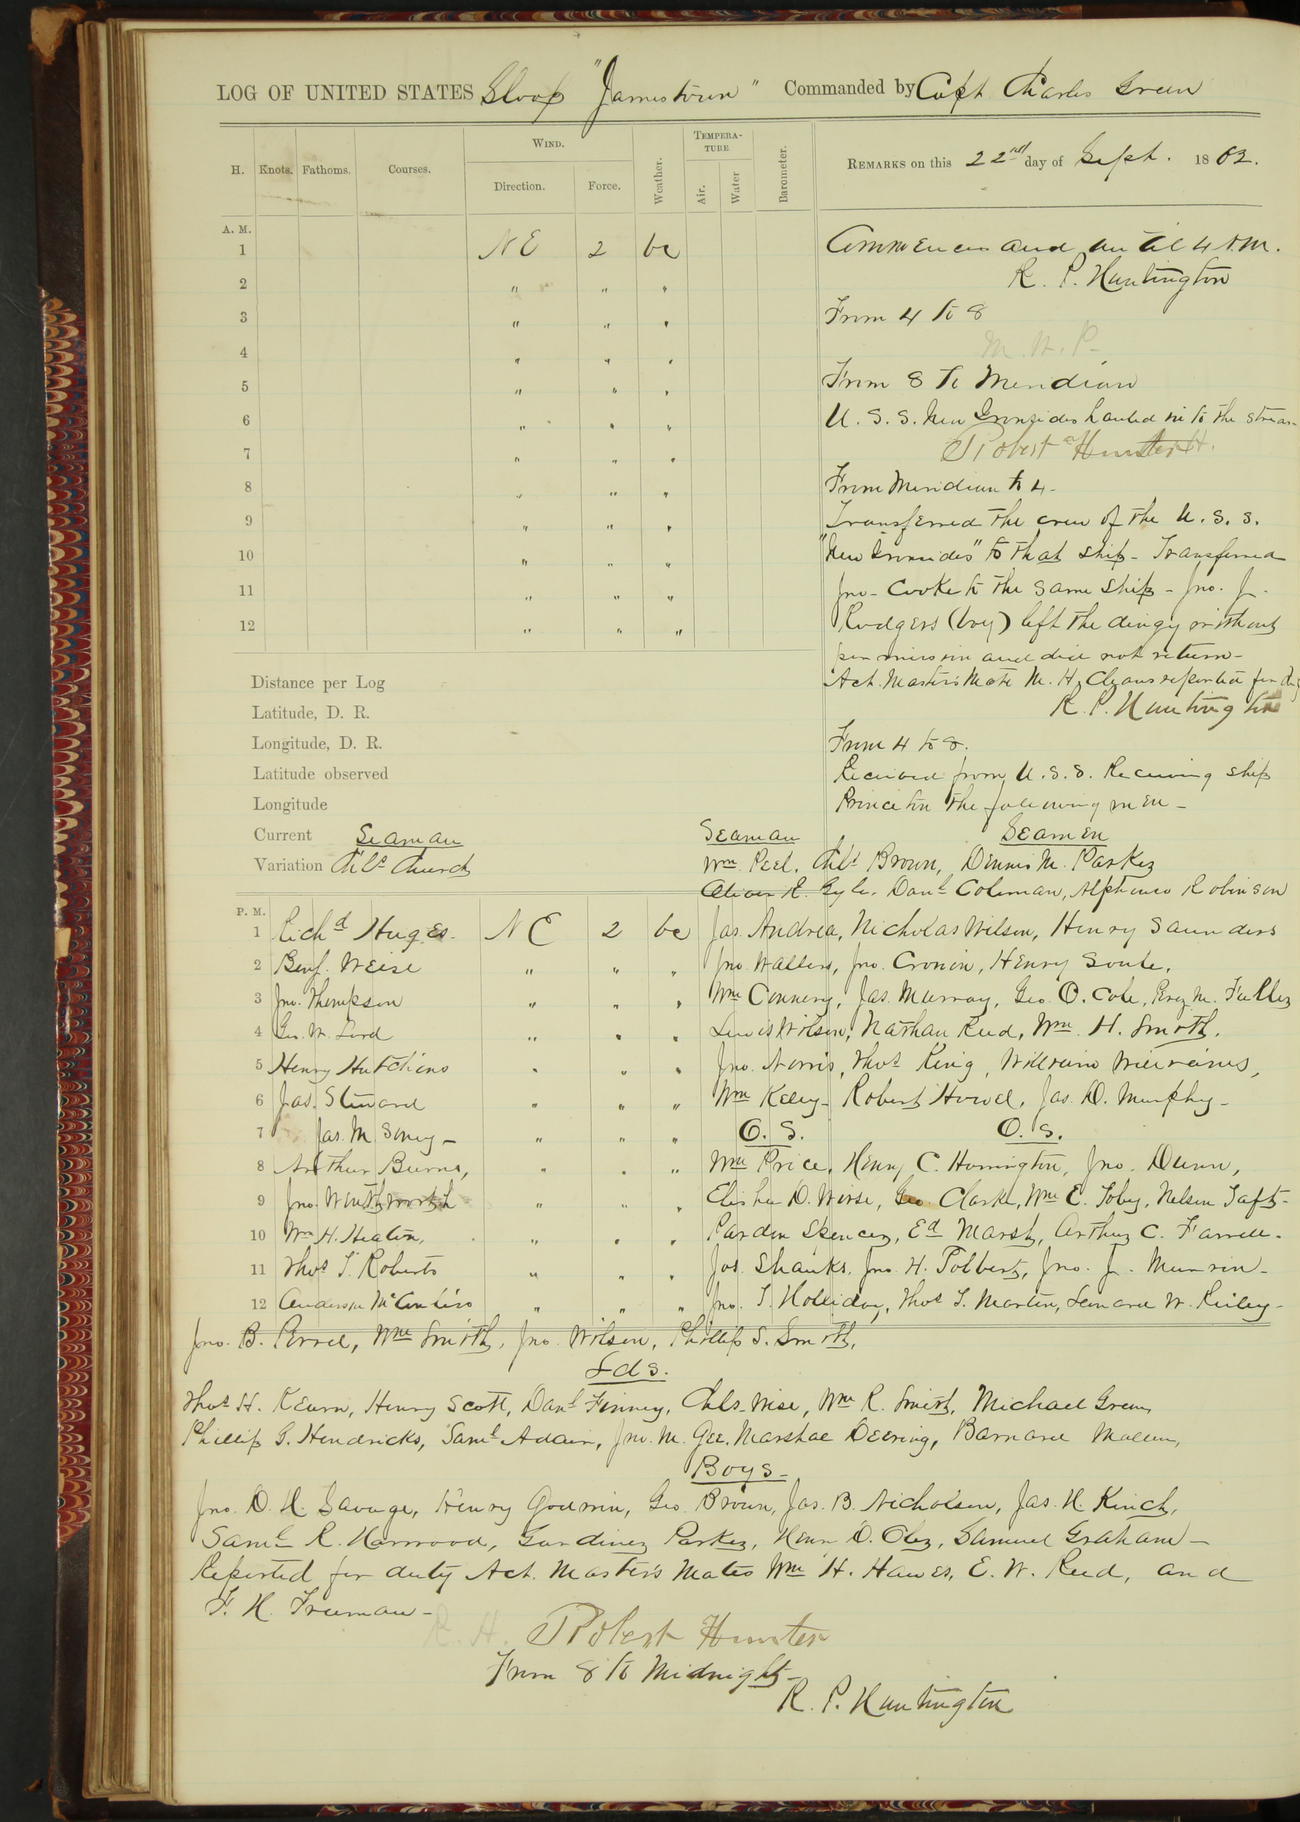 LOG OF UNITED STATES Sloop "Jamestown" Commanded by Capt Charles Green
H. Knots. Fathoms. Courses. WIND. Direction. Force. Weather. TEMPERATURE Air. Water Barometer.
REMARKS on this 22nd day of Sept. 1862.
A. M.
1 NE 2 bc
2 " " "
3 " " "
4 " " "
5 " " "
6 " " "
7 " " "
8 " " "
9 " " "
10 " " "
11 " " "
12 " " "
Commences and until 4 A.M.
R. P. Huntington
From 4 to 8
M. W. P.
From 8 to Meridian
U. S. S. New Ironsides hauled in to the stream
Robert Hunter
From Meridian to 4-
Transferred the crew of the U. S. S.
"New Ironsides" to that ship - Transferred
Jno- Cooke to the same ship - Jno. J.
Rodgers (boy) left the dingy without
permission and did not return-
Act. Masters Mate M. H. reported for duty
R. P. Huntington
From 4 to 8.
Received from U. S. S. Receiving ship
Princeton the following men -
Distance per Log
Latitude, D. R.
Longitude, D. R.
Latitude observed
Longitude
Current Seaman
Variation Chls Church
Seaman Seamen
Wm Peel, Chls Brown, Dennis M. Parker
Oliver R. Gyle, Danl Coleman, Alphonso Robinson
P. M.
1 Richd Huges- NE 2 bc Jas. Andrea, Nicholas Wilson, Henry Saunders
2 Benj. Weise " " " Jno. Walters, Jno. Cronin, Henry Soule,
3 Jno. Thompson " " " Wm Connery, Jas. Murray, Geo. O. Cole, M. Fuller
4 Geo. W. Lord " " " Lewis Wilson, Nathan Reed, Wm. H. Smith,
5 Henry Hutchins " " " Jno. Norris, Thos King, William Williams,
6 Jas. Steward " " " Wm Kelly- Robert Howel, Jas. D. Murphy-
7 Jas. M " " " O. S. O. S.
8 Arthur Burns, " " " Wm Price, Henry C. Harrington, Jno. Dunn,
9 Jno. Wentworth " " " Elisha D. Wise, Geo Clarke, Wm E. Toby, Nelson Taft-
10 Wm H. Heaton, " " " Pardon Spencer, Ed Marsh, Arthur C. Farrell-
11 Thos T. Roberts " " " Jos. Shanks, Jno. H. Tolbert, Jno. J.
12 Anderson " " " Jno. T. Holliday, Thos T. Martin, Leonard W.
Jno. B. Wm Smith, Jno. Wilson, Phillip S. Smith,
Lds.
Thos H. Henry Scott, Danl Finney, Chls Wise, Wm R. Smith, Michael Green,
Phillip G. Hendricks, Saml Adair, Jno. M. Gee, Marshal Deering, Barnard
Boys-
Jno. D. H. Savage, Henry Godwin, Geo. Brown, Jas. B. Nicholson, Jas. H. Kinch,
Saml R. Harwood, Gardiner Parker, Henry D. Samuel Graham-
Reported for duty Act. Master's Mates Wm H. Hawes, E. W. Reed, and
F. H. Freeman-
R. H. Robert Hunter
From 8 to Midnight-
R. P. Huntington